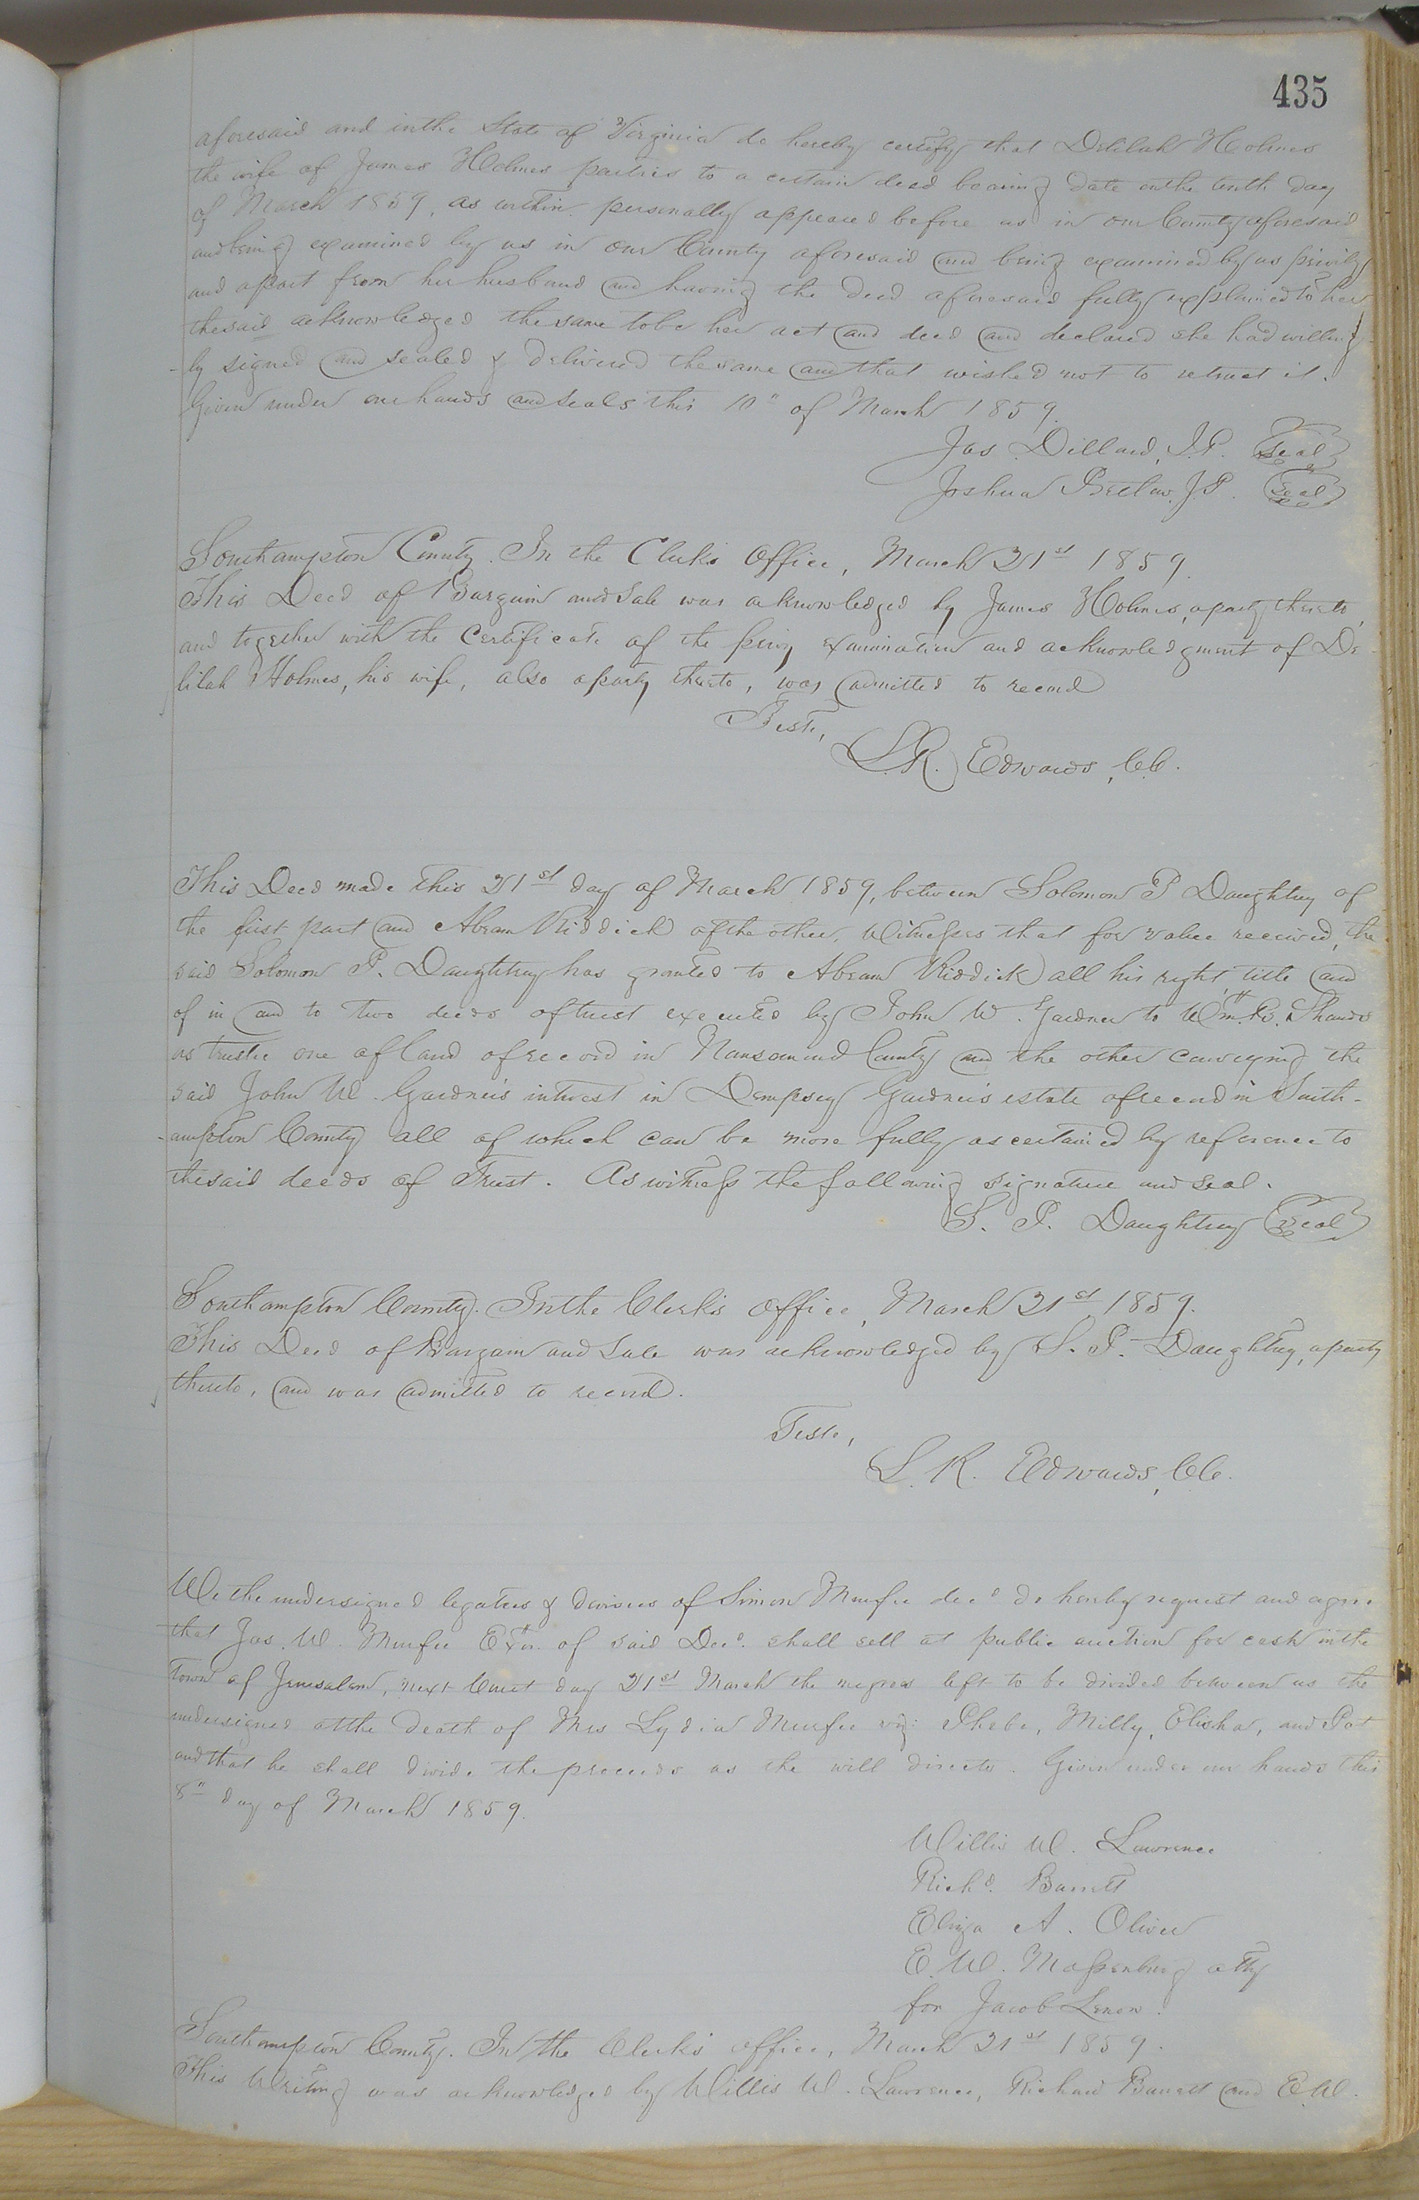 435
aforesaid and in the State of Virginia do hereby certify that Delilah Holmes
the wife of James Holmes parties to a certain deed bearing date on the tenth day
of March 1859, as within personally appeared before us in our County aforesaid
and being examined by us in our County aforesaid and being examined by us privily
and apart from her husband and having the deed aforesaid fully explained to her
the said acknowledged the same to be her act and deed and declared she had willing
-ly signed and sealed & delivered the same and that wished not to retract it.
Given under our hands and seals this 10" of March 1859.
Jas. Dillard, J.P. Seal
Joshua J.P. Seal
Southampton County. In the Clerk's Office, March 21st 1859.
This Deed of Bargain and Sale was acknowledged by James Holmes, a party thereto,
and together with the Certificate of the privy examination and acknowledgment of De-
lilah Holmes, his wife, also a party thereto, was admitted to record
Teste,
L.R. Edwards, CC.
This Deed made this 21st day of March 1859, between Solomon P Daughtry of
the first part and Abram Riddick of the other. Witnesses that for value received, the
said Solomon P. Daughtrey has granted to Abram Riddick all his right, title and
of in and to two deeds of trust executed by John W. Gardner to Wm. B. Shands
as trustee one of land of record in Nansemond County and the other conveying the
said John W. Gardner's interest in Dempsey Gardner's estate of record in South-
-ampton County all of which can be more fully ascertained by reference to
the said deeds of Trust. As witness the following signature and seal.
S. P. Daughtrey Seal
Southampton County. In the Clerk's Office, March 21st 1859.
This Deed of Bargain and Sale was acknowledged by S. P. Daughtry, a party
thereto, and was admitted to record.
Teste,
L. R. Edwards, CC.
We the undersigned legatees & devisees of Simon Murfee decd do hereby request and agree
that Jas. W. Murfee Extr. of said Decd. shall sell at public auction for cash in the
Town of Jerusalem, next Court day 21st March the negroes left to be divided between us the
undersigned at the death of Mrs Lydia Murfee viz: Phebe, Milly, Elisha, and Pat
and that he shall divide the proceeds as the will directs. Given under our hands this
8th day of March 1859.
Willis W. Lawrence
Richd. Barrett
Eliza A. Oliver
E. W. Massenburg atty
for Jacob
Southampton County. In the Clerk's office, March 21st 1859.
This Writing was acknowledged by Willis W. Lawrence, Richard Barrett and E. W.